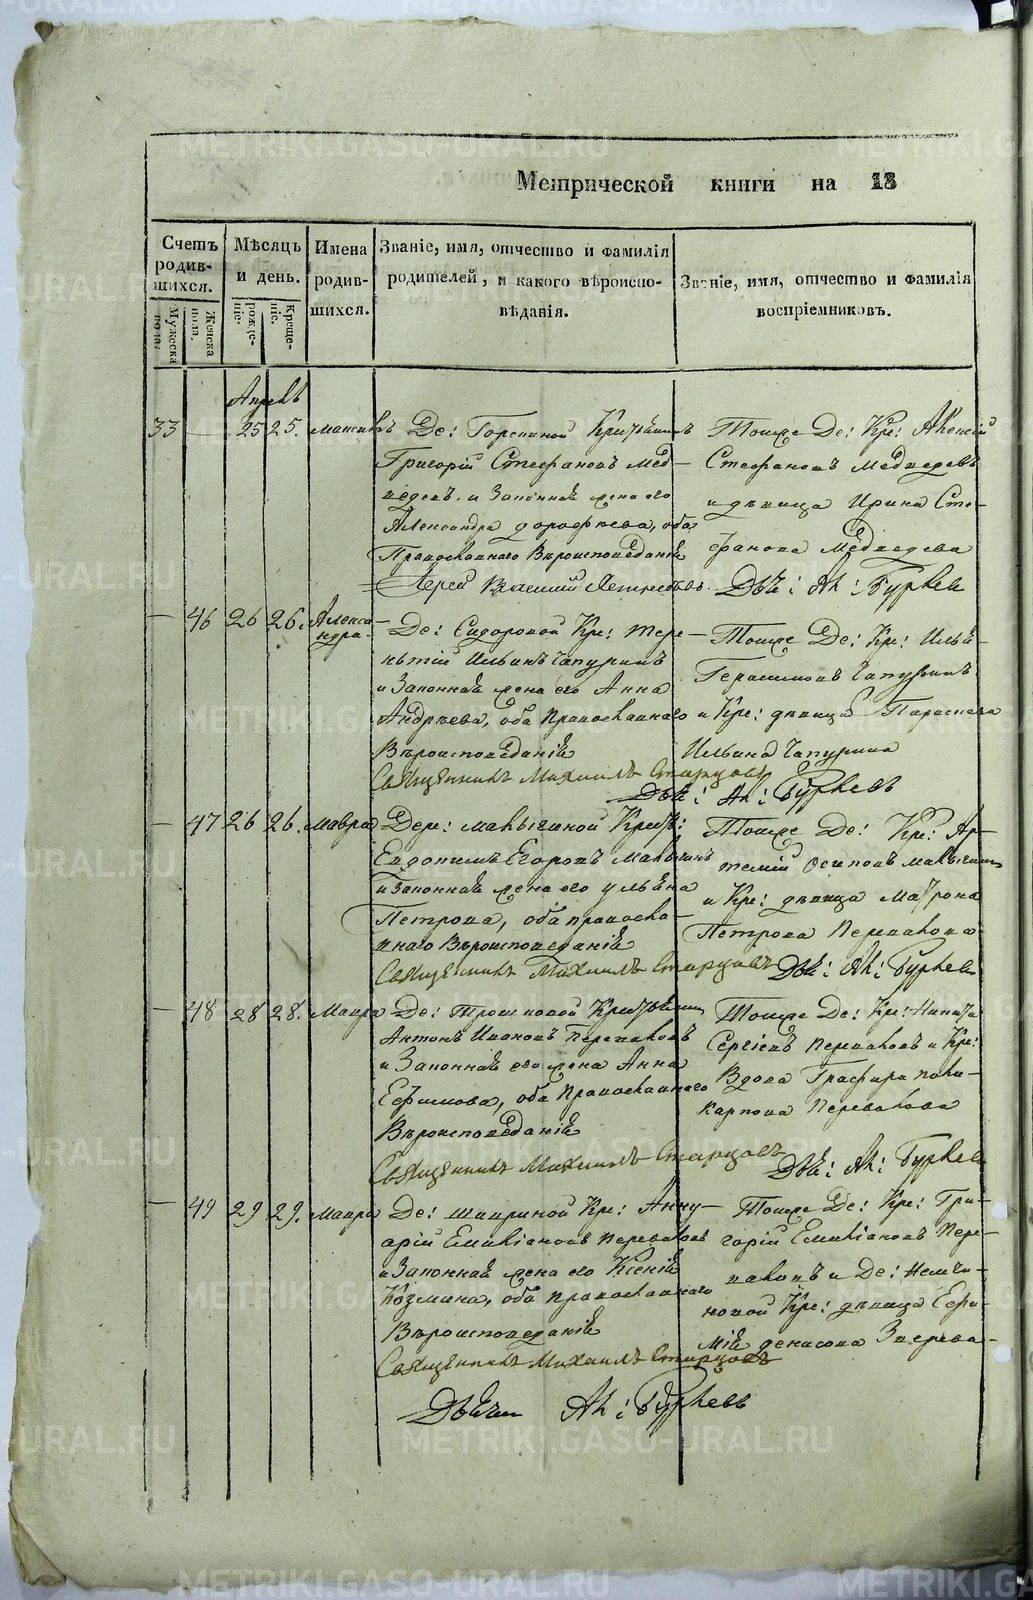 Метрической книги на 18
Счетъ родив-шихся.
Мужеска пола.
Женска пола.
Мѣсяцъ и день.
рожде-ніе.
Креще-ніе.
Имена родив-шихся.
Званіе, имя, отчество и фамилія
родителей, и какого вѣроиспо-
вѣданія.
Званіе, имя, отчество и фамилія
воспріемниковъ.
Апрель
33 — 25 25. Максимъ
Де:
Григорій Стефановъ Мед-
ведевъ и Законная жена его
Александра Дорофѣева, оба
Православнаго Вѣроисповеданія
Іерей Василий
Тоиже Де: Кре: Алексѣй
Стефановъ Медведевъ
и дѣвица Ирина Сте-
фанова Медведева
Дьч: Ал: Бурлев
— 46 26 26. Алекса-
ндра.
Де: Сидоровой Кре: Тере-
ньтій Ильинъ Чапуринъ
и Законная жена его Анна
Андрѣева, оба Православнаго
Вѣроисповеданія
Священникъ Михаилъ Старцовъ
Тоиже Де: Кре: Илья
Герасимовъ Чапуринъ
и Кре: дѣвица Параскева
Ильина Чапурина
Дьч: Ал: Бурлевъ
— 47 26 26. Мавра
Дере: Макличиной
Евдокимъ Егоровъ
и Законная жена его Ульяна
Петрова, оба Правосла-
внаго Вѣроисповеданія
Священникъ Михаилъ Старцовъ
Тоиже Де: Кре: Ар-
темій Осиповъ
и Кре: дѣвица Матрона
Петрова Перевалова
Дьч: Ал: Бурлев
— 48 28 28. Мавра
Де: Трошковой
Антонъ Ивановъ Переваловъ
и Законная его жена Анна
Ефимова, оба Православнаго
Вѣроисповеданія
Священникъ Михаилъ Старцовъ
Тоиже Де: Кре: Никита
Сергіевъ Переваловъ и Кре:
Вдова Глафира Поли-
карпова Перевалова
Дьч: Ал: Бурлев
— 49 29 29. Мавра
Де: Шавриной Кре: Анну-
арій Емиліановъ Переваловъ
и Законная жена его Ксенія
Козмина, оба Православнаго
Вѣроисповеданія
Священникъ Михаилъ Старцовъ
Тоиже Де: Кре: Гри-
горій Емиліановъ Пере-
валовъ и Де: Немчи-
новой Кре: дѣвица Ефи-
мія Денисова Зверева
Дьячи Ал: Бурлевъ
METRIKI.GASO-URAL.RU